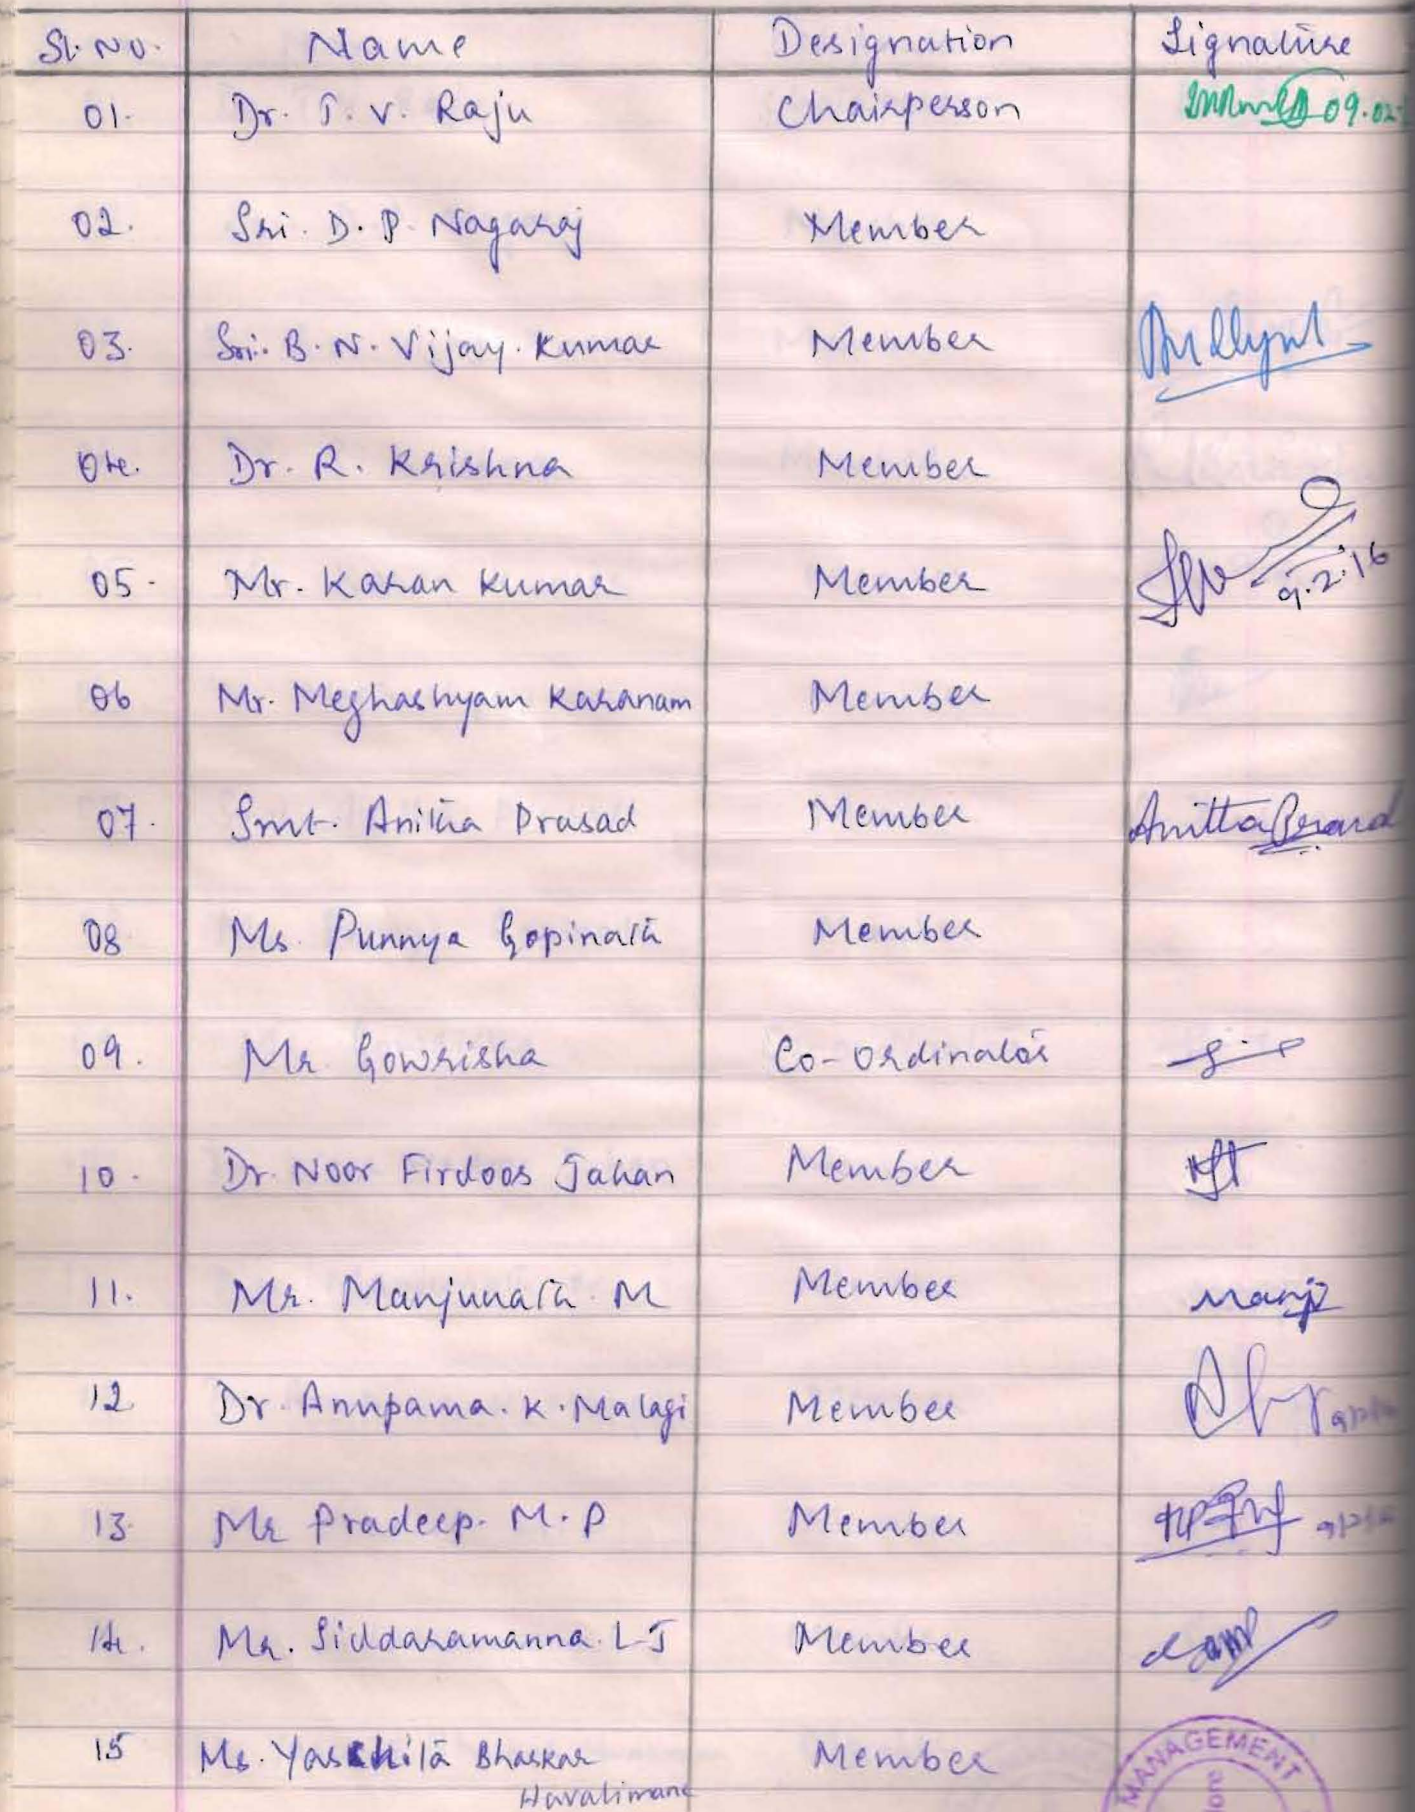 Sl. No. Name Designation Signature
01. Dr. T. V. Raju Chairperson 09.02.
02. Sri. D. P. Nagaraj Member
03. Sri. B. N. Vijay. Kumar Member
04. Dr. R. Krishna Member
05. Mr. Karan Kumar Member 9.2.16
06 Mr. Meghashyam Karanam Member
07. Smt. Anitha Prasad Member Anitta Prasad
08 Ms. Punnya Gopinath Member
09. Mr. Gowrisha Co-ordinator
10. Dr. Noor Firdoos Jahan Member
11. Mr. Manjunath M Member Manju
12 Dr. Anupama. K. Malagi Member
13. Mr Pradeep. M. P Member
14. Mr. Siddaramanna. L J Member
15 Bhaskar Member
Havalimane
MANAGEMENT